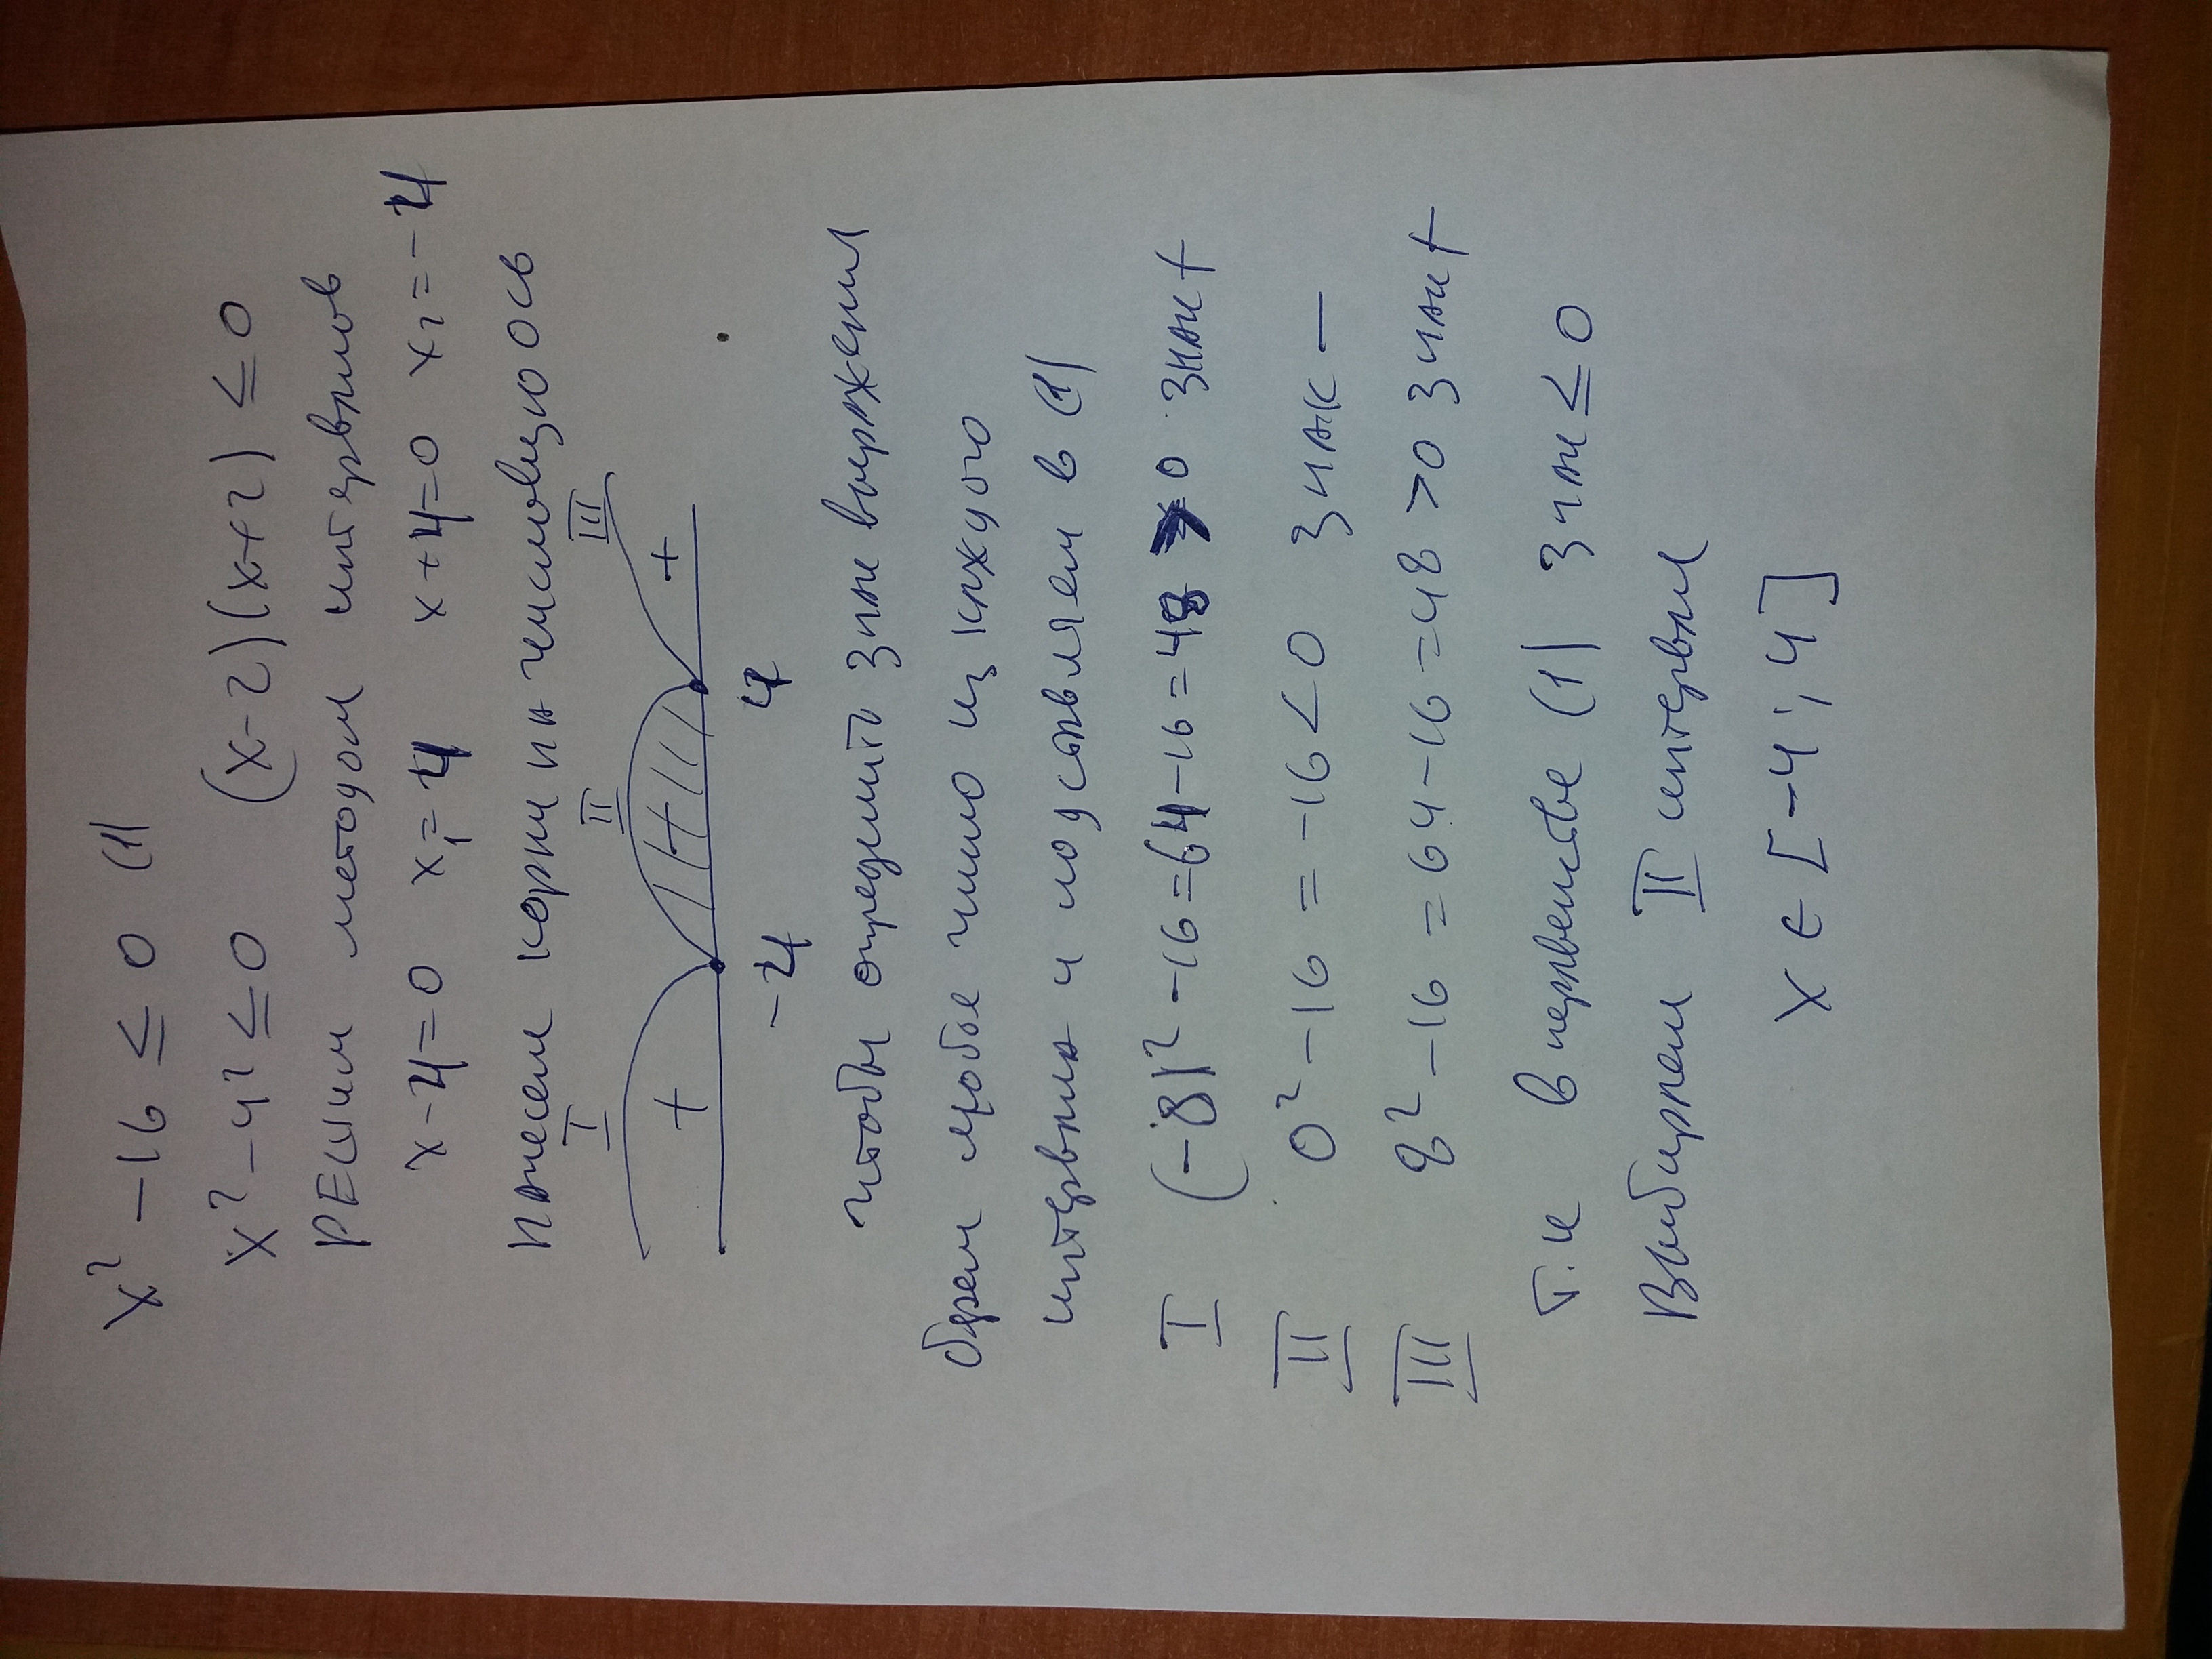 x² - 16 ≤ 0 (1)
x² - 4² ≤ 0 (x-2)(x+2) ≤ 0
РЕшим методом интервалов
x-4=0 x₁=4 x+4=0 x₂=-4
Нанесем корни на числовую ось
I II III
+ +
-4 4
чтобы определить знак выражения
берем любое число из каждого
интервала и подставляем в (1)
I (-8)² - 16 = 64 - 16 = 48 > 0 знак +
II 0² - 16 = -16 < 0 знак -
III 8² - 16 = 64 - 16 = 48 > 0 знак +
т.к в неравенстве (1) знак ≤ 0
Выбираем II интервал
x ∈ [-4; 4]